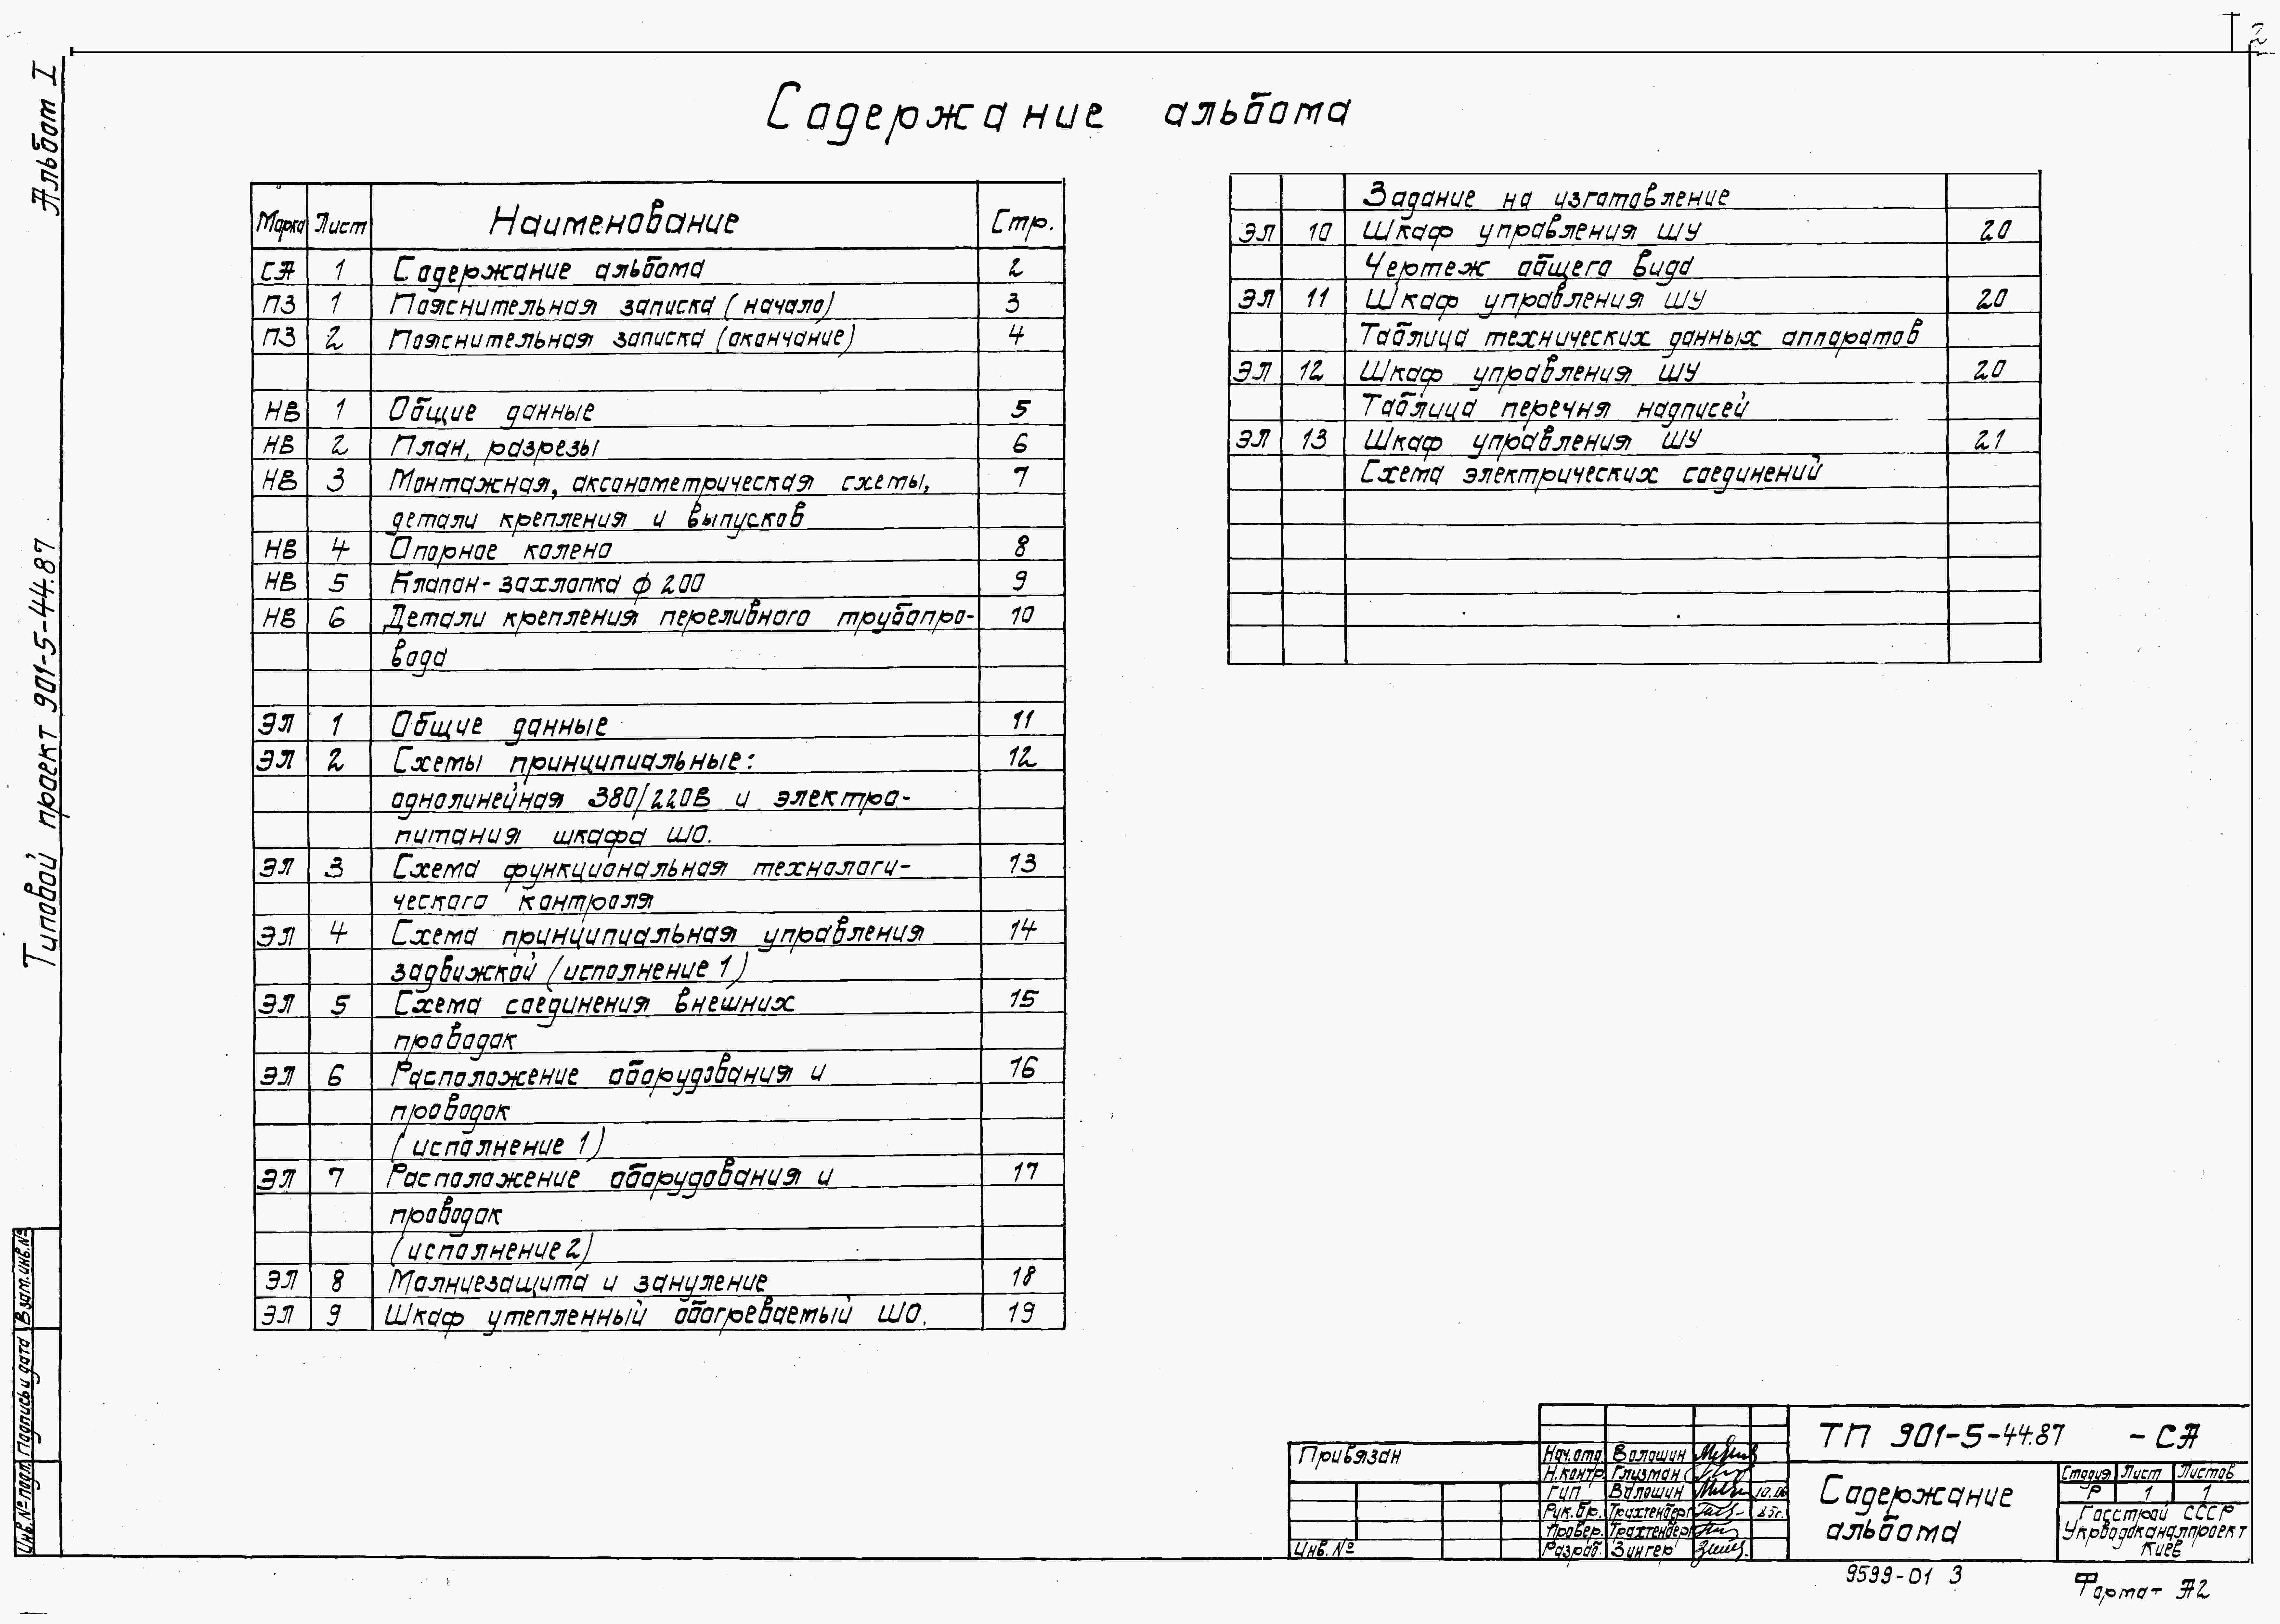 2
Альбом I
Типовой проект 901-5-44.87
Содержание альбома
Марка Лист Наименование Стр.
СА 1 Содержание альбома 2
ПЗ 1 Пояснительная записка (начало) 3
ПЗ 2 Пояснительная записка (окончание) 4
НВ 1 Общие данные 5
НВ 2 План, разрезы 6
НВ 3 Монтажная, аксонометрическая схемы, 7
детали крепления и выпусков
НВ 4 Опорное колено 8
НВ 5 Клапан-захлопка ф 200 9
НВ 6 Детали крепления переливного трубопро- 10
вода
ЭЛ 1 Общие данные 11
ЭЛ 2 Схемы принципиальные: 12
однолинейная 380/220В и электро-
питания шкафа ШО.
ЭЛ 3 Схема функциональная технологи- 13
ческого контроля
ЭЛ 4 Схема принципиальная управления 14
задвижкой (исполнение 1)
ЭЛ 5 Схема соединения внешних 15
проводок
ЭЛ 6 Расположение оборудования и 16
проводок
(исполнение 1)
ЭЛ 7 Расположение оборудования и 17
проводок
(исполнение 2)
ЭЛ 8 Молниезащита и зануление 18
ЭЛ 9 Шкаф утепленный обогреваемый ШО. 19
Задание на изготовление
ЭЛ 10 Шкаф управления ШУ 20
Чертеж общего вида
ЭЛ 11 Шкаф управления ШУ 20
Таблица технических данных аппаратов
ЭЛ 12 Шкаф управления ШУ 20
Таблица перечня надписей
ЭЛ 13 Шкаф управления ШУ 21
Схема электрических соединений
Взам.инв.№
Подпись и дата
Инв.№ подл.
Привязан
Инв. №
Нач.отд. Волошин
Н.контр. Глизман
ГИП Волошин
Рук.бр. Трахтенберг
Провер. Трахтенберг
Разраб. Зингер
ТП 901-5-44.87 -СА
Содержание
альбома
Стадия Лист Листов
Р 1 1
Госстрой СССР
Укрводоканалпроект
Киев
9599-01 3
Формат А2